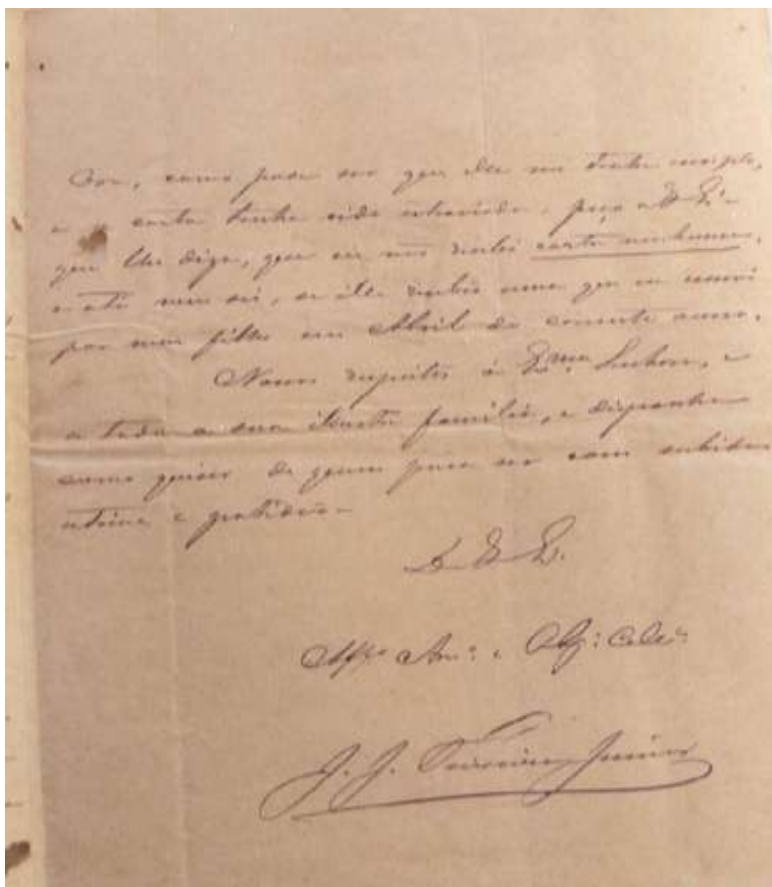 Ora, como pode ser que elle me tenha escripto,
e a carta tenha sido extraviada, peço a V. Ex.ª
que lhe diga, que eu não recebi carta nenhuma,
e até nem sei, se elle recebeu uma que eu enviei
por meu filho em Abril do corrente anno.
Meus respeitos á Ex.ma Senhora, e
a toda a sua illustre familia, e disponha
como quizer de quem preza ser com subida
estima e gratidão
D V. Ex.
Am.º e Obg.º
J. J. Junior